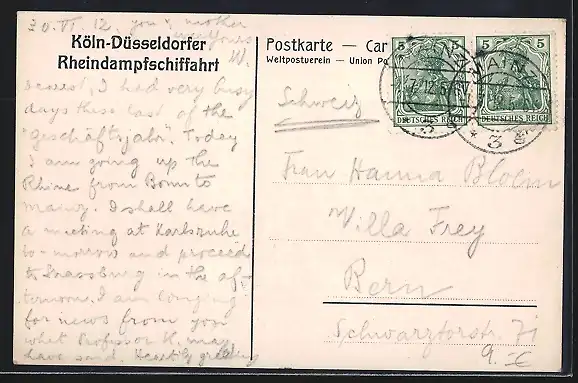 20. VI. 12. you & mother
yours
W.
Köln-Düsseldorfer
Rheindampfschiffahrt
Postkarte — Car
Weltpostverein — Union Po
5 5 5
DEUTSCHES REICH DEUTSCHES REICH
MAINZ
* 3
Dearest, I had very busy
days these last of the
"geschäftsjahr". Today
I am going up the
Rhine from Bonn to
Mainz. I shall have
a meeting at Karlsruhe
to-morrow and proceed
to Strassburg in the af-
ternoon. I am longing
for news from you
what Professor K. may
have said. Hearty greeting
Schweiz
Frau Hanna Bloem
Villa Frey
Bern
Schwarztorstr. 71